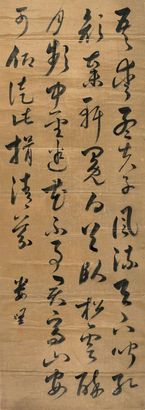 吾愛孟夫子風流天下聞紅
顏棄軒冕白首臥松雲醉
月頻中聖迷花不事君高山安
可仰徒此揖清芬 婁堅